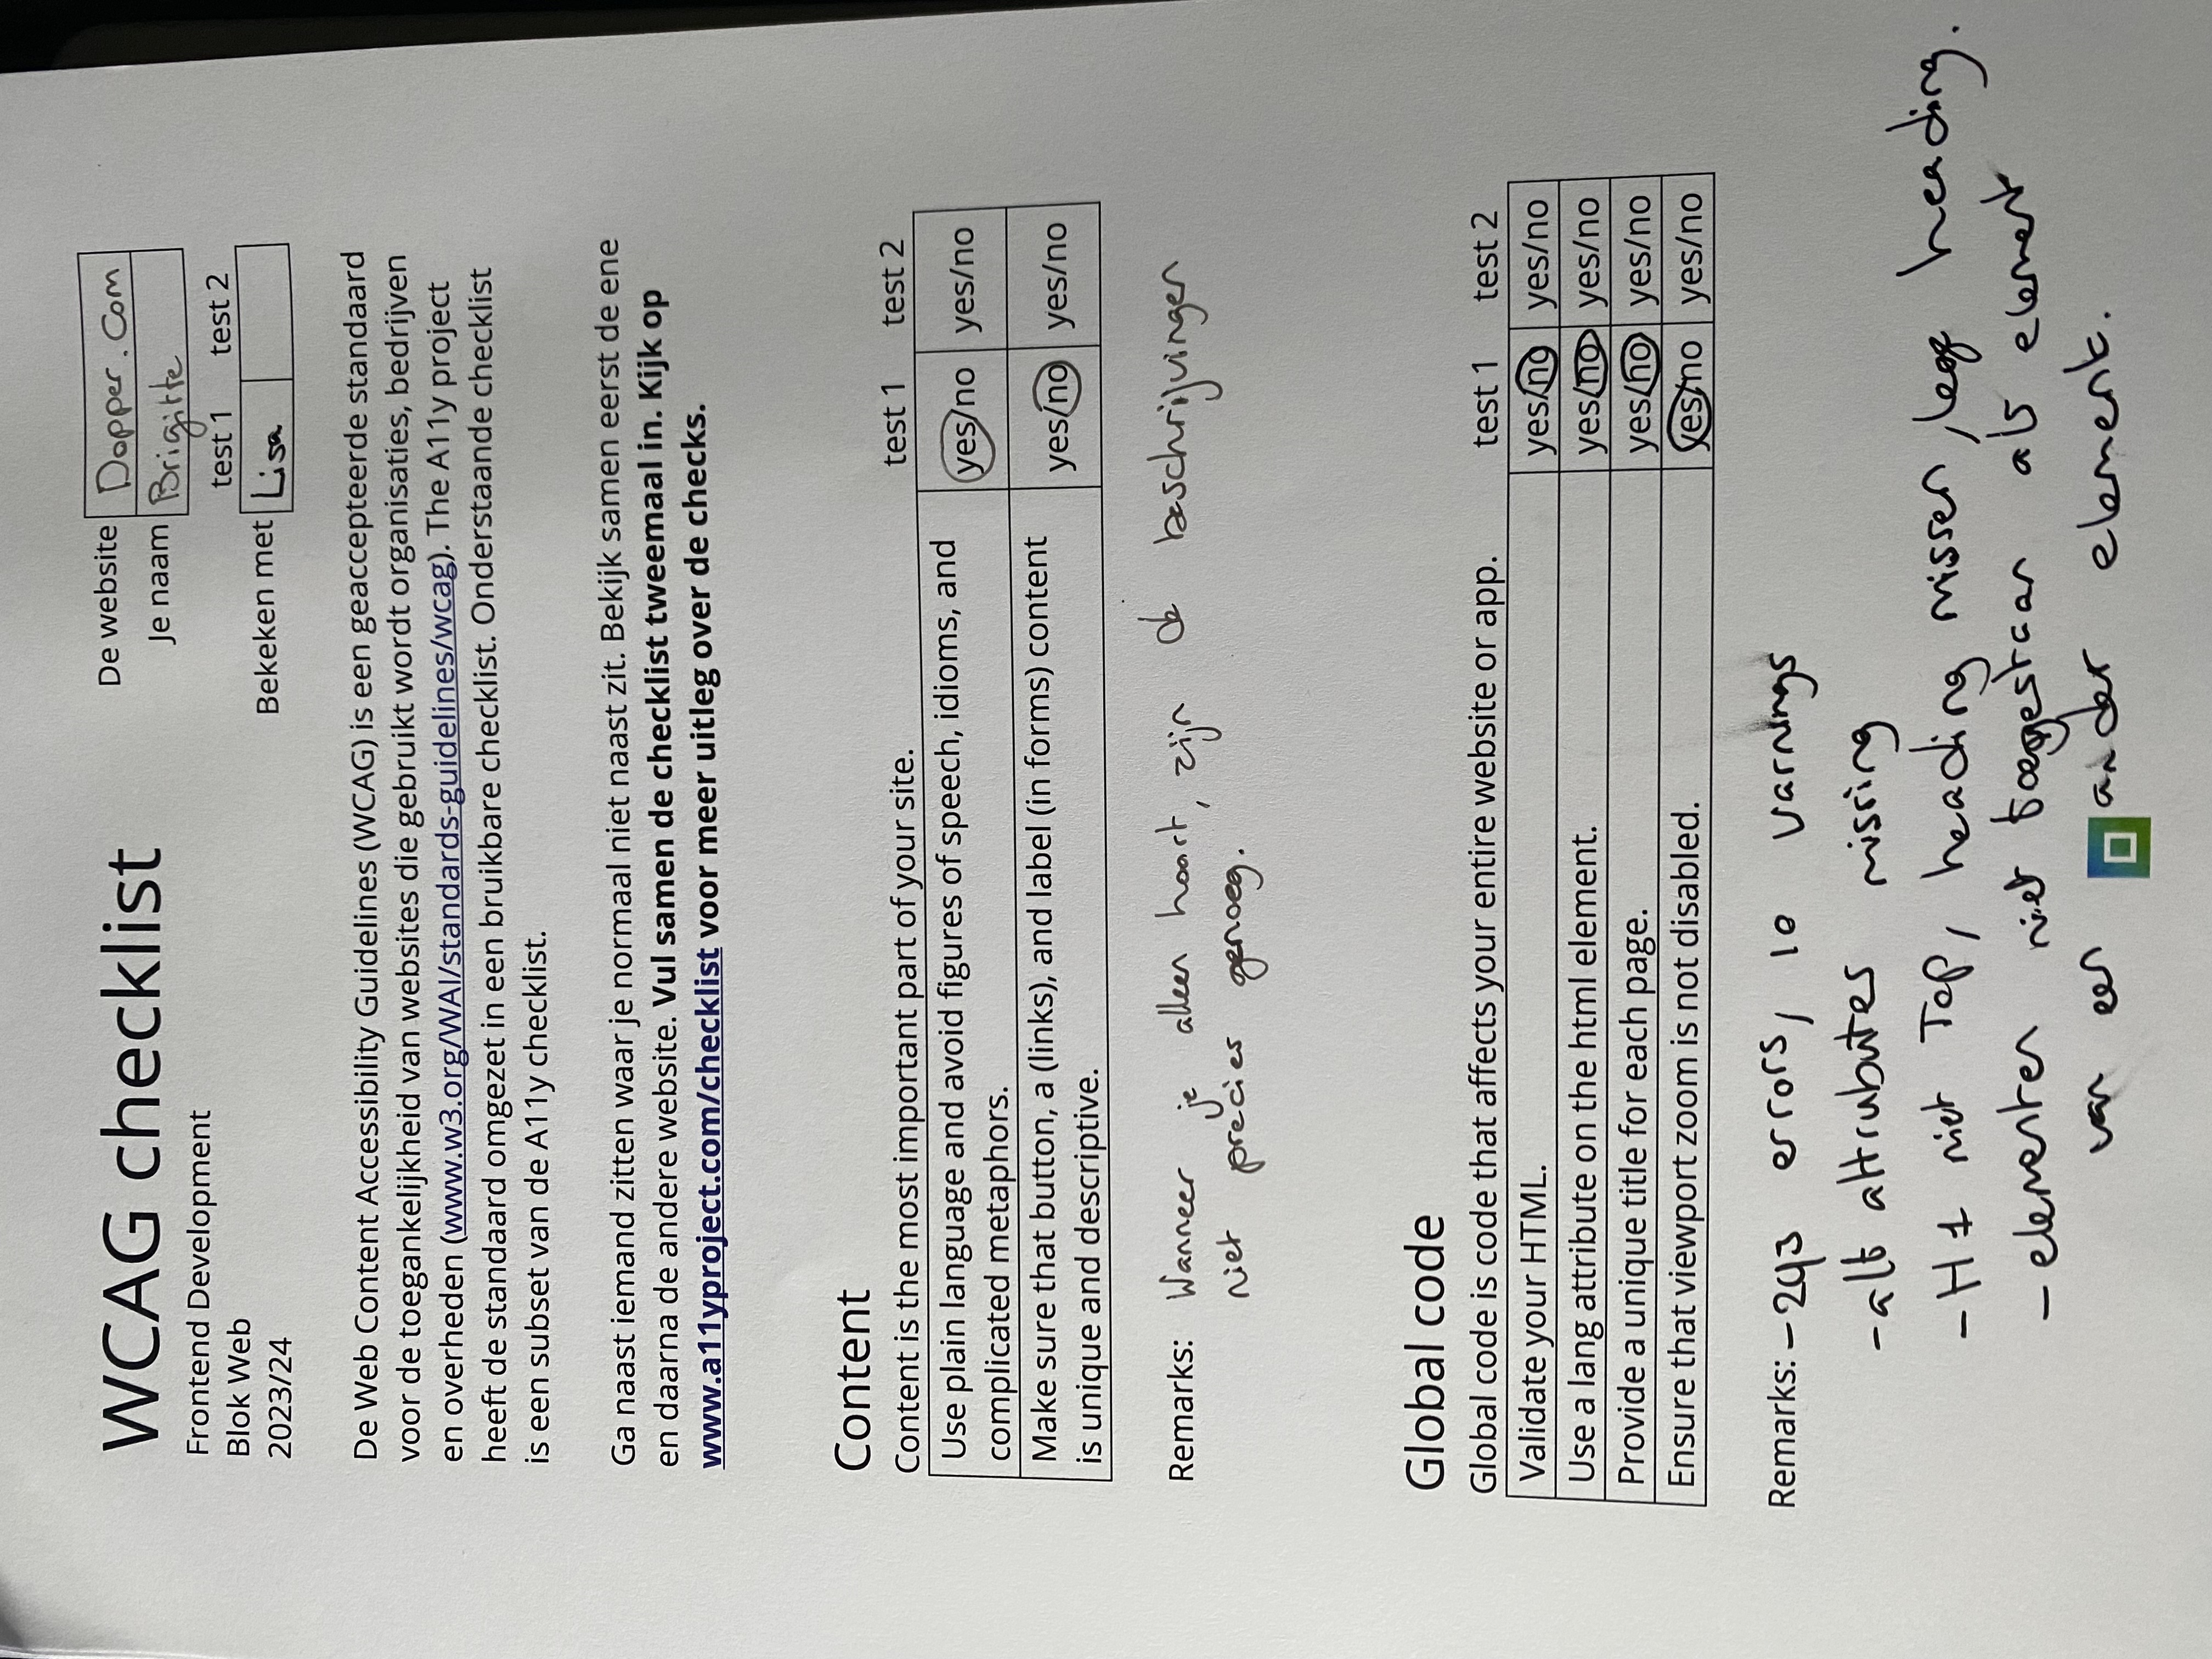 WCAG checklist
De website Dopper.Com
Je naam Brigitte
Frontend Development
Blok Web
2023/24
test 1 test 2
Bekeken met Lisa
De Web Content Accessibility Guidelines (WCAG) is een geaccepteerde standaard
voor de toegankelijkheid van websites die gebruikt wordt organisaties, bedrijven
en overheden (www.w3.org/WAI/standards-guidelines/wcag). The A11y project
heeft de standaard omgezet in een bruikbare checklist. Onderstaande checklist
is een subset van de A11y checklist.
Ga naast iemand zitten waar je normaal niet naast zit. Bekijk samen eerst de ene
en daarna de andere website. Vul samen de checklist tweemaal in. Kijk op
www.a11yproject.com/checklist voor meer uitleg over de checks.
Content
Content is the most important part of your site. test 1 test 2
Use plain language and avoid figures of speech, idioms, and
complicated metaphors. yes/no yes/no
Make sure that button, a (links), and label (in forms) content
is unique and descriptive. yes/no yes/no
Remarks: Wanneer je alleen hoort, zijn de beschrijvingen
niet precies genoeg.
Global code
Global code is code that affects your entire website or app. test 1 test 2
Validate your HTML. yes/no yes/no
Use a lang attribute on the html element. yes/no yes/no
Provide a unique title for each page. yes/no yes/no
Ensure that viewport zoom is not disabled. yes/no yes/no
Remarks: - 293 errors, 10 varnings
- alt attrubutes missing
- H1 niet Top, heading missen, leeg heading.
- elementen niet toegestaan als element
van een ander element.